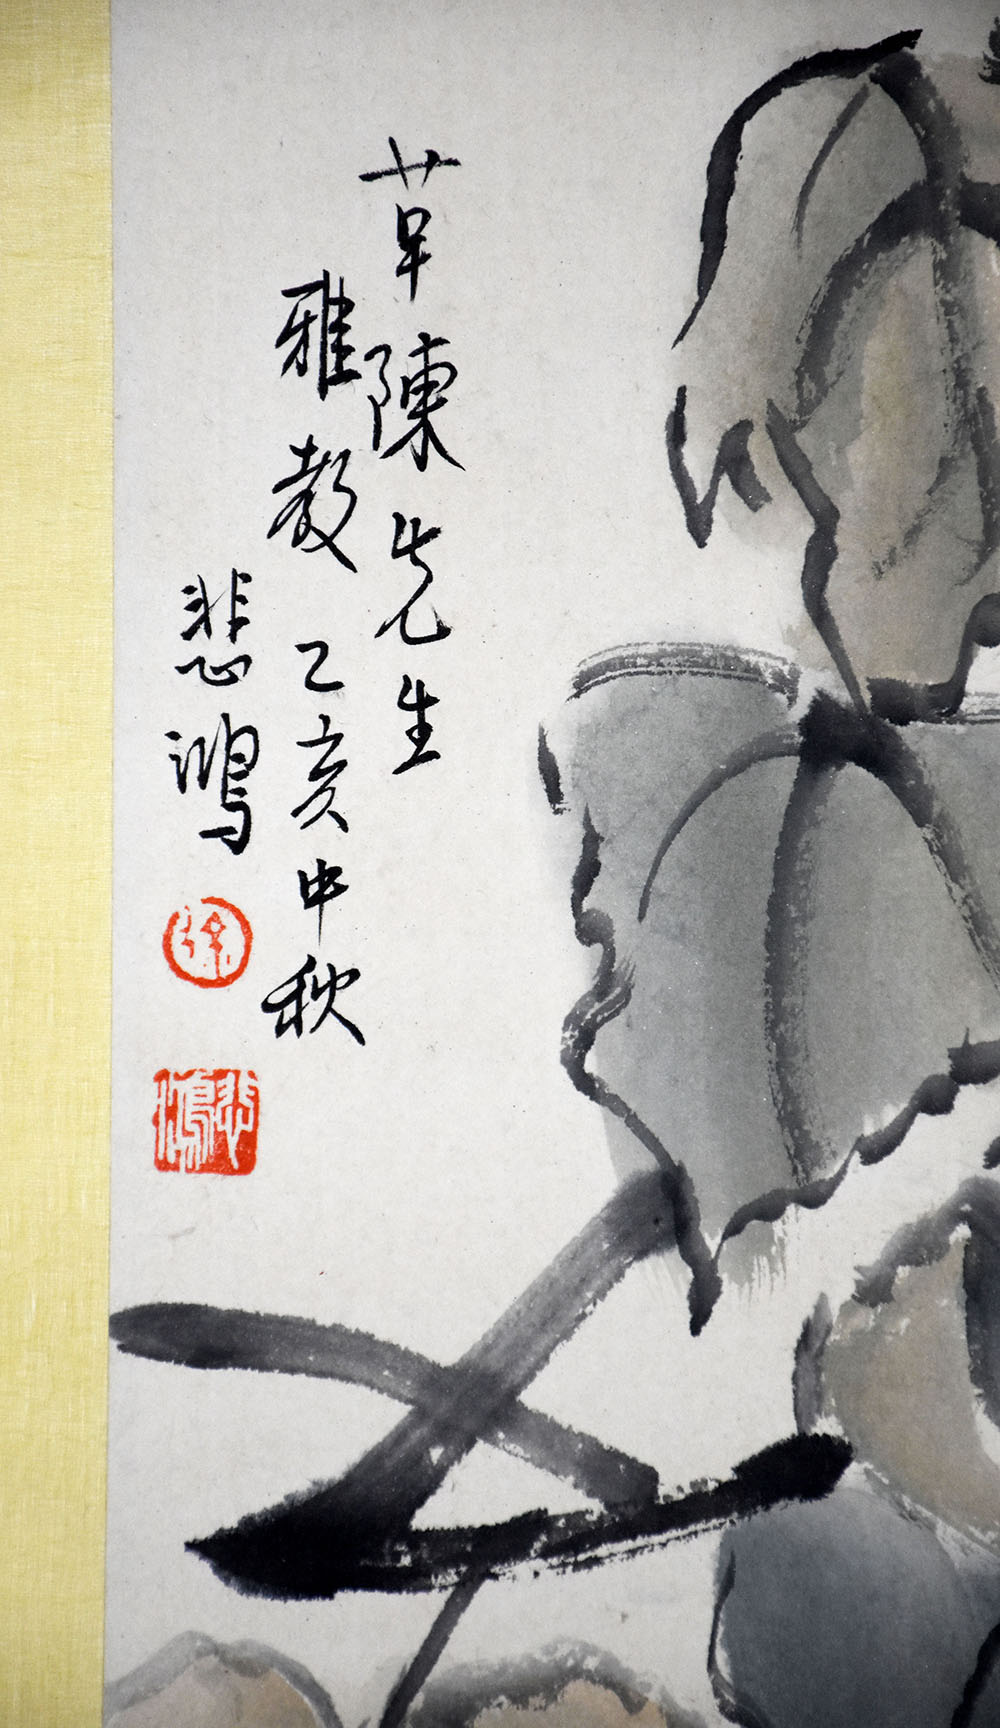 草陳先生
雅教 乙亥中秋
悲鴻
徐
悲鴻